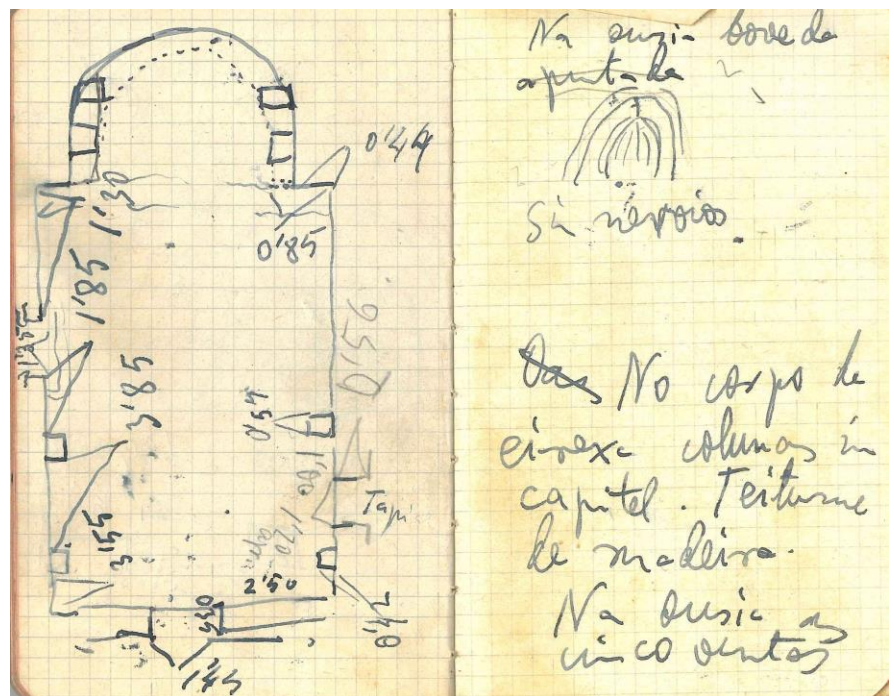 0'44
1'30
0'85
1'85
0'56
3'85
0'54
1'00
Tapi
1'70
3'55
2'50
0'42
1'45
Na ousia boveda
apuntada
Sin nervios.
No corpo da
eirexa columnas sin
capitel. Teitume
de madeira.
Na ousia as
cinco ventas